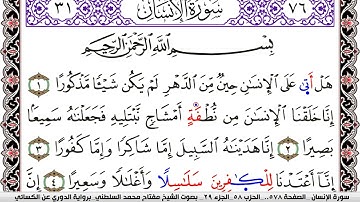 ٣١ سُورَةُ الإِنسَانِ ٧٦
بِسْمِ اللَّهِ الرَّحْمَٰنِ الرَّحِيمِ
هَلْ أَتَىٰ عَلَى الْإِنسَانِ حِينٌ مِّنَ الدَّهْرِ لَمْ يَكُن شَيْئًا مَّذْكُورًا ١
إِنَّا خَلَقْنَا الْإِنسَانَ مِن نُّطْفَةٍ أَمْشَاجٍ نَّبْتَلِيهِ فَجَعَلْنَاهُ سَمِيعًا
بَصِيرًا ٢ إِنَّا هَدَيْنَاهُ السَّبِيلَ إِمَّا شَاكِرًا وَإِمَّا كَفُورًا ٣
إِنَّا أَعْتَدْنَا لِلْكَافِرِينَ سَلَاسِلًا وَأَغْلَالًا وَسَعِيرًا ٤ إِنَّ
سورة الإنسان . الصفحة ٥٧٨. الحزب ٥٨ . الجزء ٢٩ . بصوت الشيخ مفتاح محمد السلطني . برواية الدوري عن الكسائي